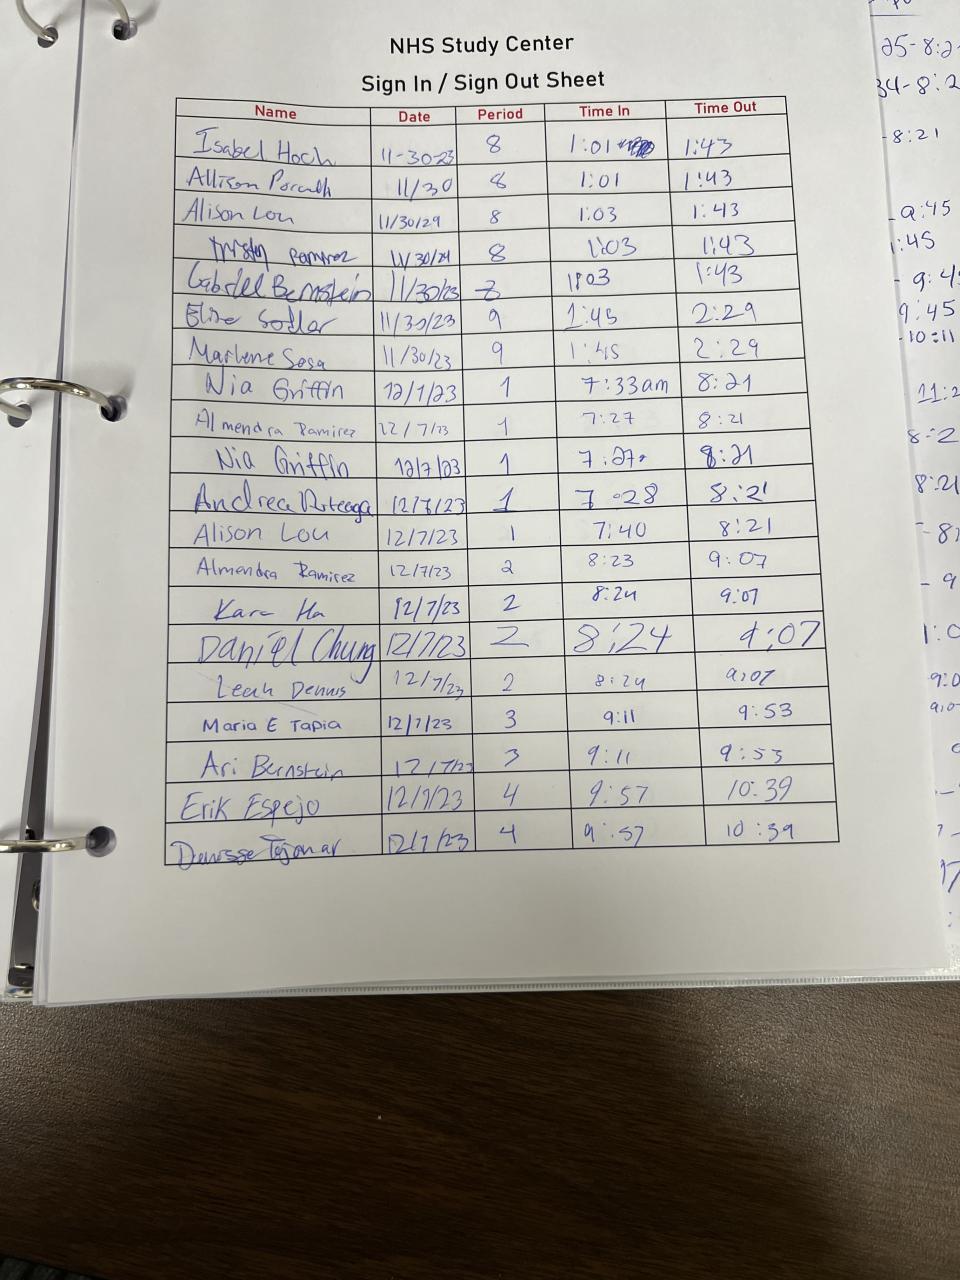 NHS Study Center
Sign In / Sign Out Sheet
Name Date Period Time In Time Out
Isabel Hoch 11-30-23 8 1:01 1:43
Allison 11/30 8 1:01 1:43
Alison Lou 11/30/29 8 1:03 1:43
Ramirez 11/30/24 8 1:03 1:43
Gabriel Bernstein 11/30/23 8 1:03 1:43
Elise 11/30/23 9 1:45 2:29
Marlene Sosa 11/30/23 9 1:45 2:29
Nia Griffin 12/7/23 1 7:33am 8:21
Almendra Ramirez 12/7/23 1 7:27 8:21
Nia Griffin 12/7/23 1 7:27 8:21
Andrea Arteaga 12/7/23 1 7:28 8:21
Alison Lou 12/7/23 1 7:40 8:21
Almendra Ramirez 12/7/23 2 8:23 9:07
Kara Ha 12/7/23 2 8:24 9:07
Daniel Chung 12/7/23 2 8:24 9:07
Leah Dennis 12/7/23 2 8:24 9:07
Maria E Tapia 12/7/23 3 9:11 9:53
Ari Bernstein 12/7/23 3 9:11 9:53
Erik Espejo 12/7/23 4 9:57 10:39
Denisse 12/7/23 4 9:57 10:39
-8:21
9:45
1:45
9:45
-10:11
8:21